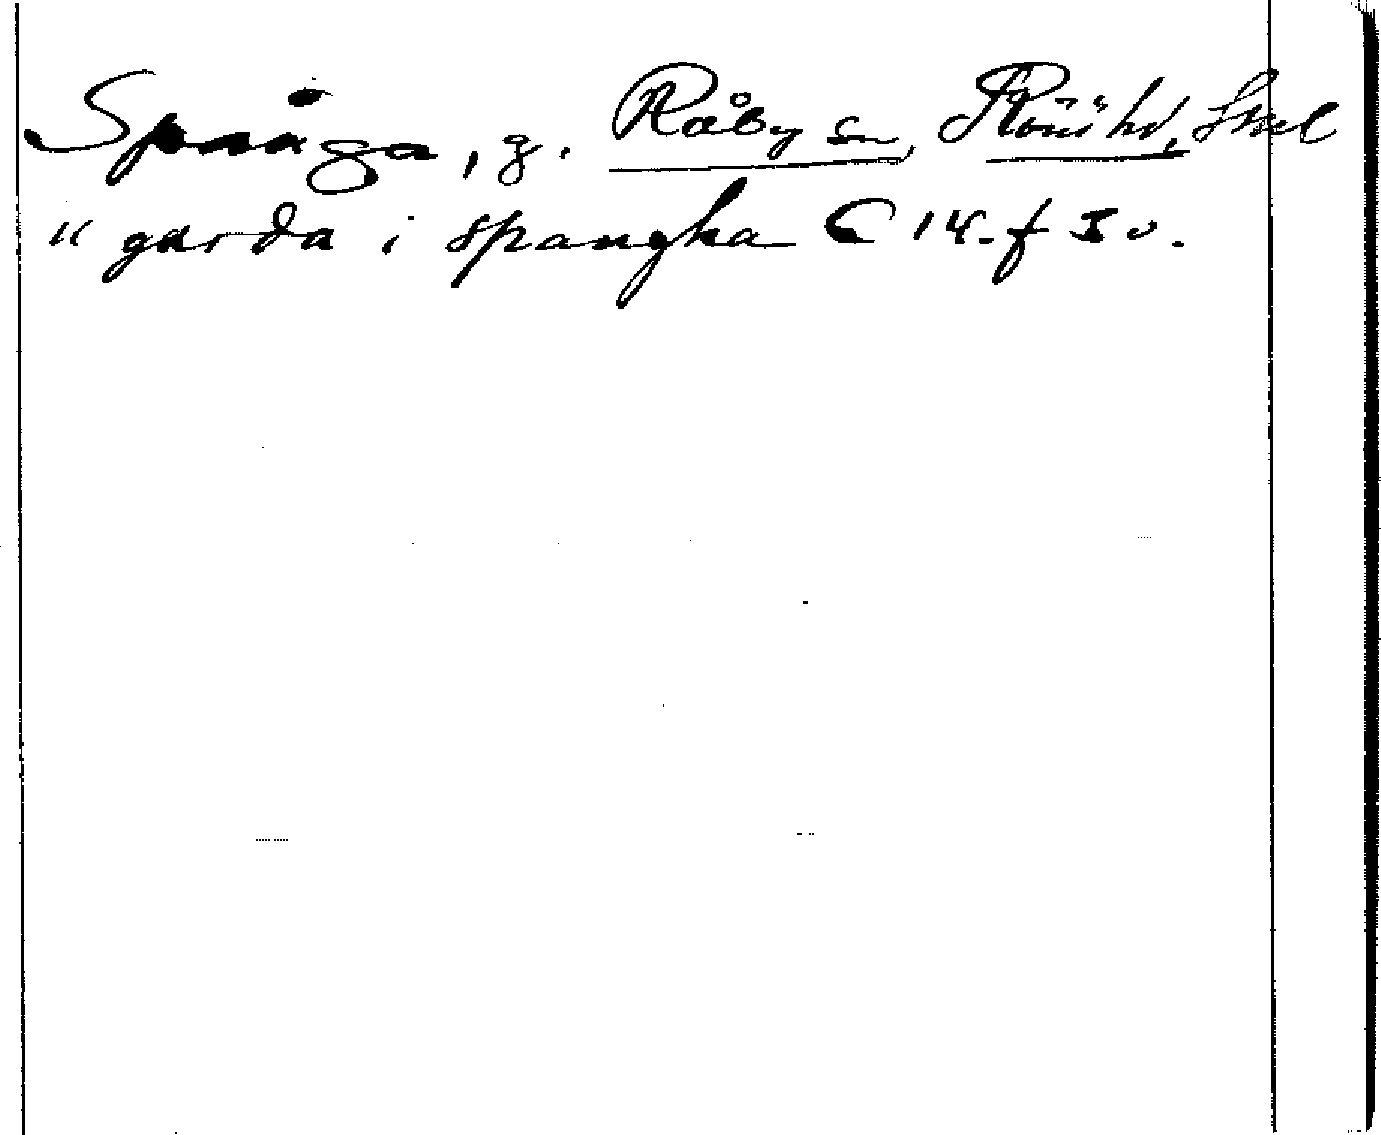 Spånga, g. Råby sn, Rönö hd, Sthl
" garda i spangha C 14. f 3 v.